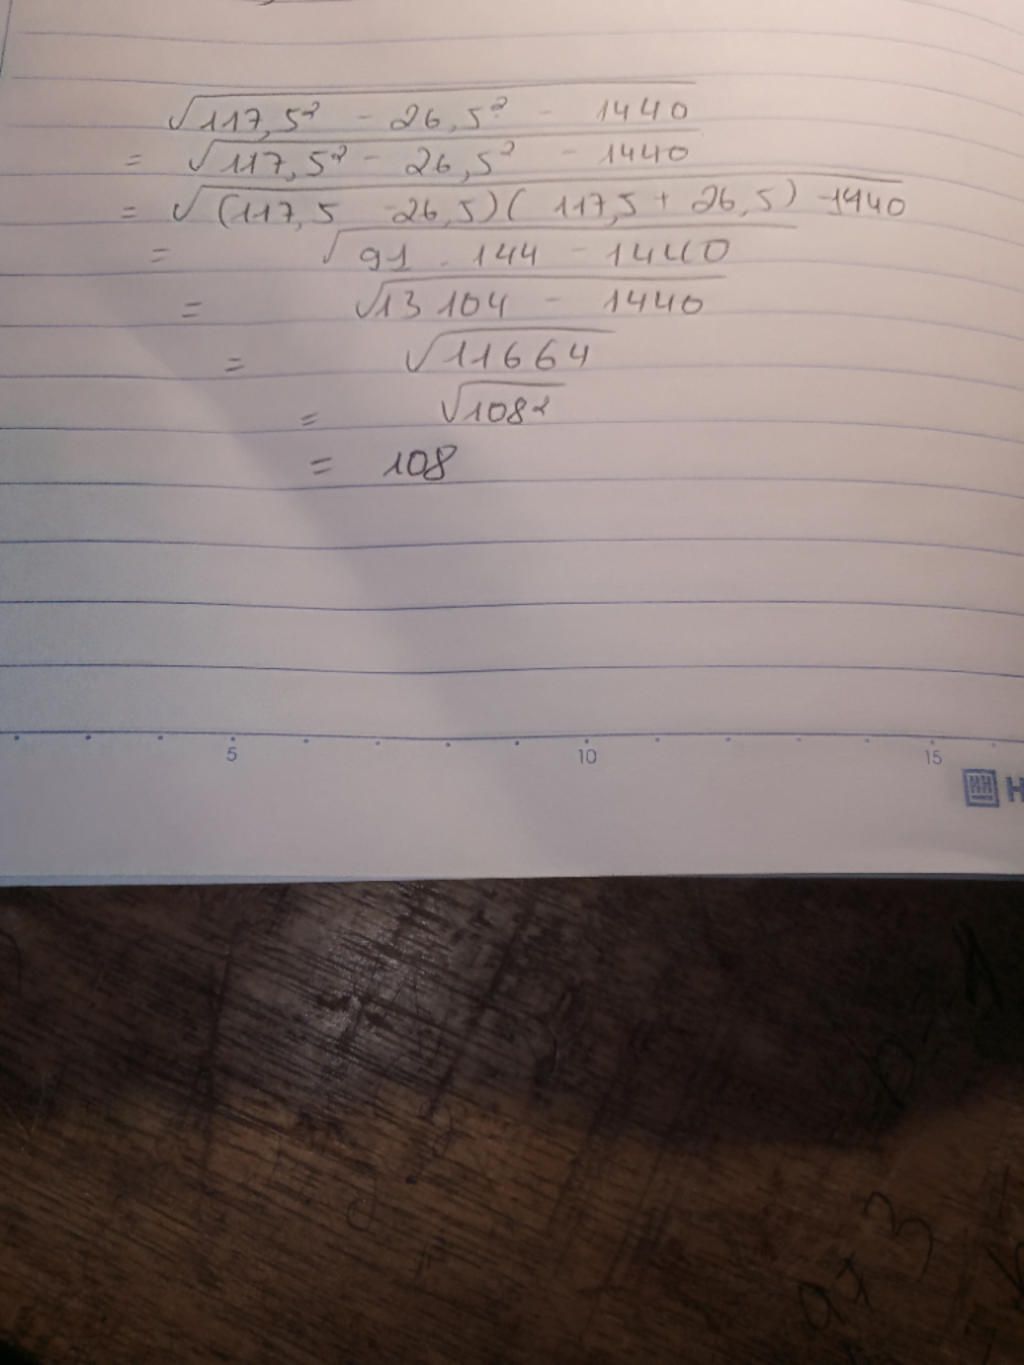 √117,5² - 26,5² - 1440
= √117,5² - 26,5² - 1440
= √(117,5 - 26,5)(117,5 + 26,5) - 1440
= √91 . 144 - 1440
= √13104 - 1440
= √11664
= √108²
= 108
5 10 15
H
a+3